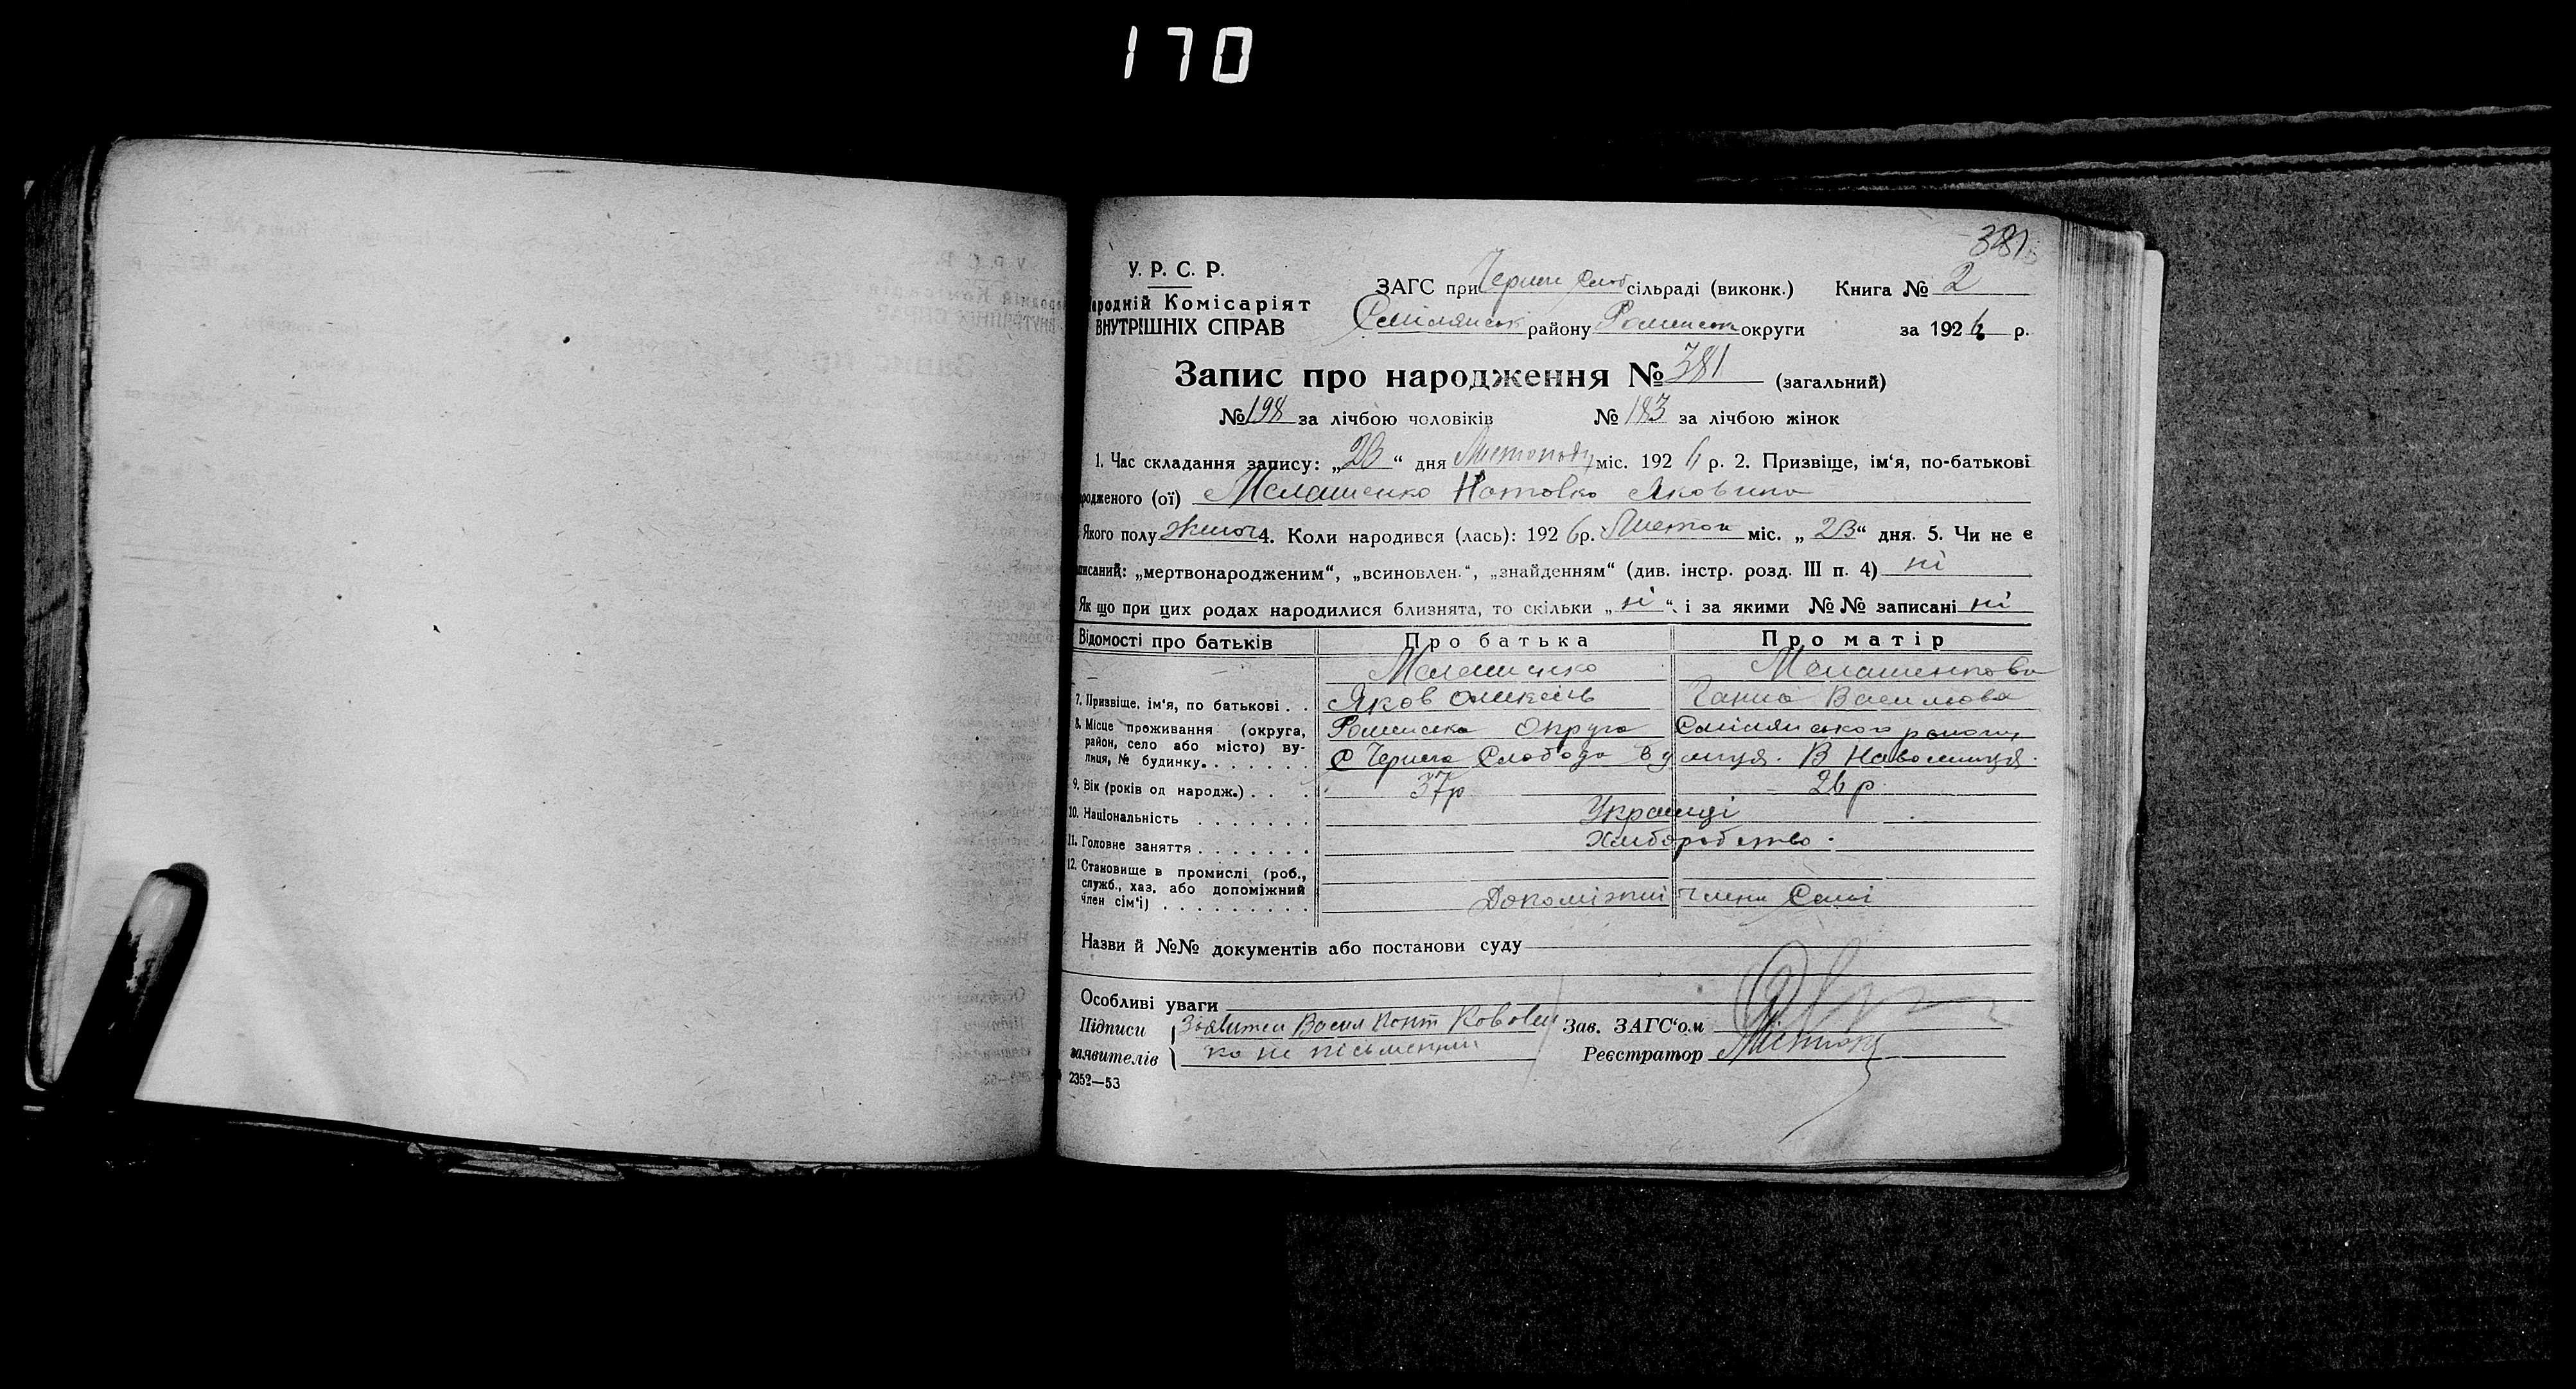 170
381
У. Р. С. Р.
ЗАГС при Черни Слоб сільраді (виконк.) Книга № 2
ародній Комісаріят
ВНУТРІШНІХ СПРАВ
Смілянськ району Роменськ округи за 1926 р.
Запис про народження № 381 (загальний)
№ 198 за лічбою чоловіків № 183 за лічбою жінок
1. Час складання запису: „23“ дня Листопаду міс. 1926 р. 2. Призвіще, ім‘я, по-батькові
родженого (ої) Малашенко Наталка Яковина
Якого полу жіноч 4. Коли народився (лась): 1926 р. Листоп міс. „23“ дня. 5. Чи не є
писаний: „мертвонародженим“, „всиновлен.“, „знайденням“ (див. інстр. розд. III п. 4) ні
Як що при цих родах народилися близнята, то скільки „ні“ і за якими №№ записані ні
Відомості про батьків Про батька Про матір
Малашенко Малашенкова
7. Призвіще, ім‘я, по батькові . . Яков Ганна Васильова
8. Місце проживання (округа, Роменська Округа Смілянського району
район, село або місто) ву-
лиця, № будинку. . . . . . . С Черна Слобода
9. Вік (років од народж.) . . . 37р 26 р
10. Національність . . . . . . . Українці
11. Головне заняття . . . . . . . Хліборобство.
12. Становище в промислі (роб.,
служб., хаз. або допоміжний
член сім‘ї) . . . . . . . . . Допоміжні члени Семї
Назви й №№ документів або постанови суду
Особливі уваги
Підписи Василь Зав. ЗАГС‘ом
заявителів ко не письменний Реєстратор
2352—53